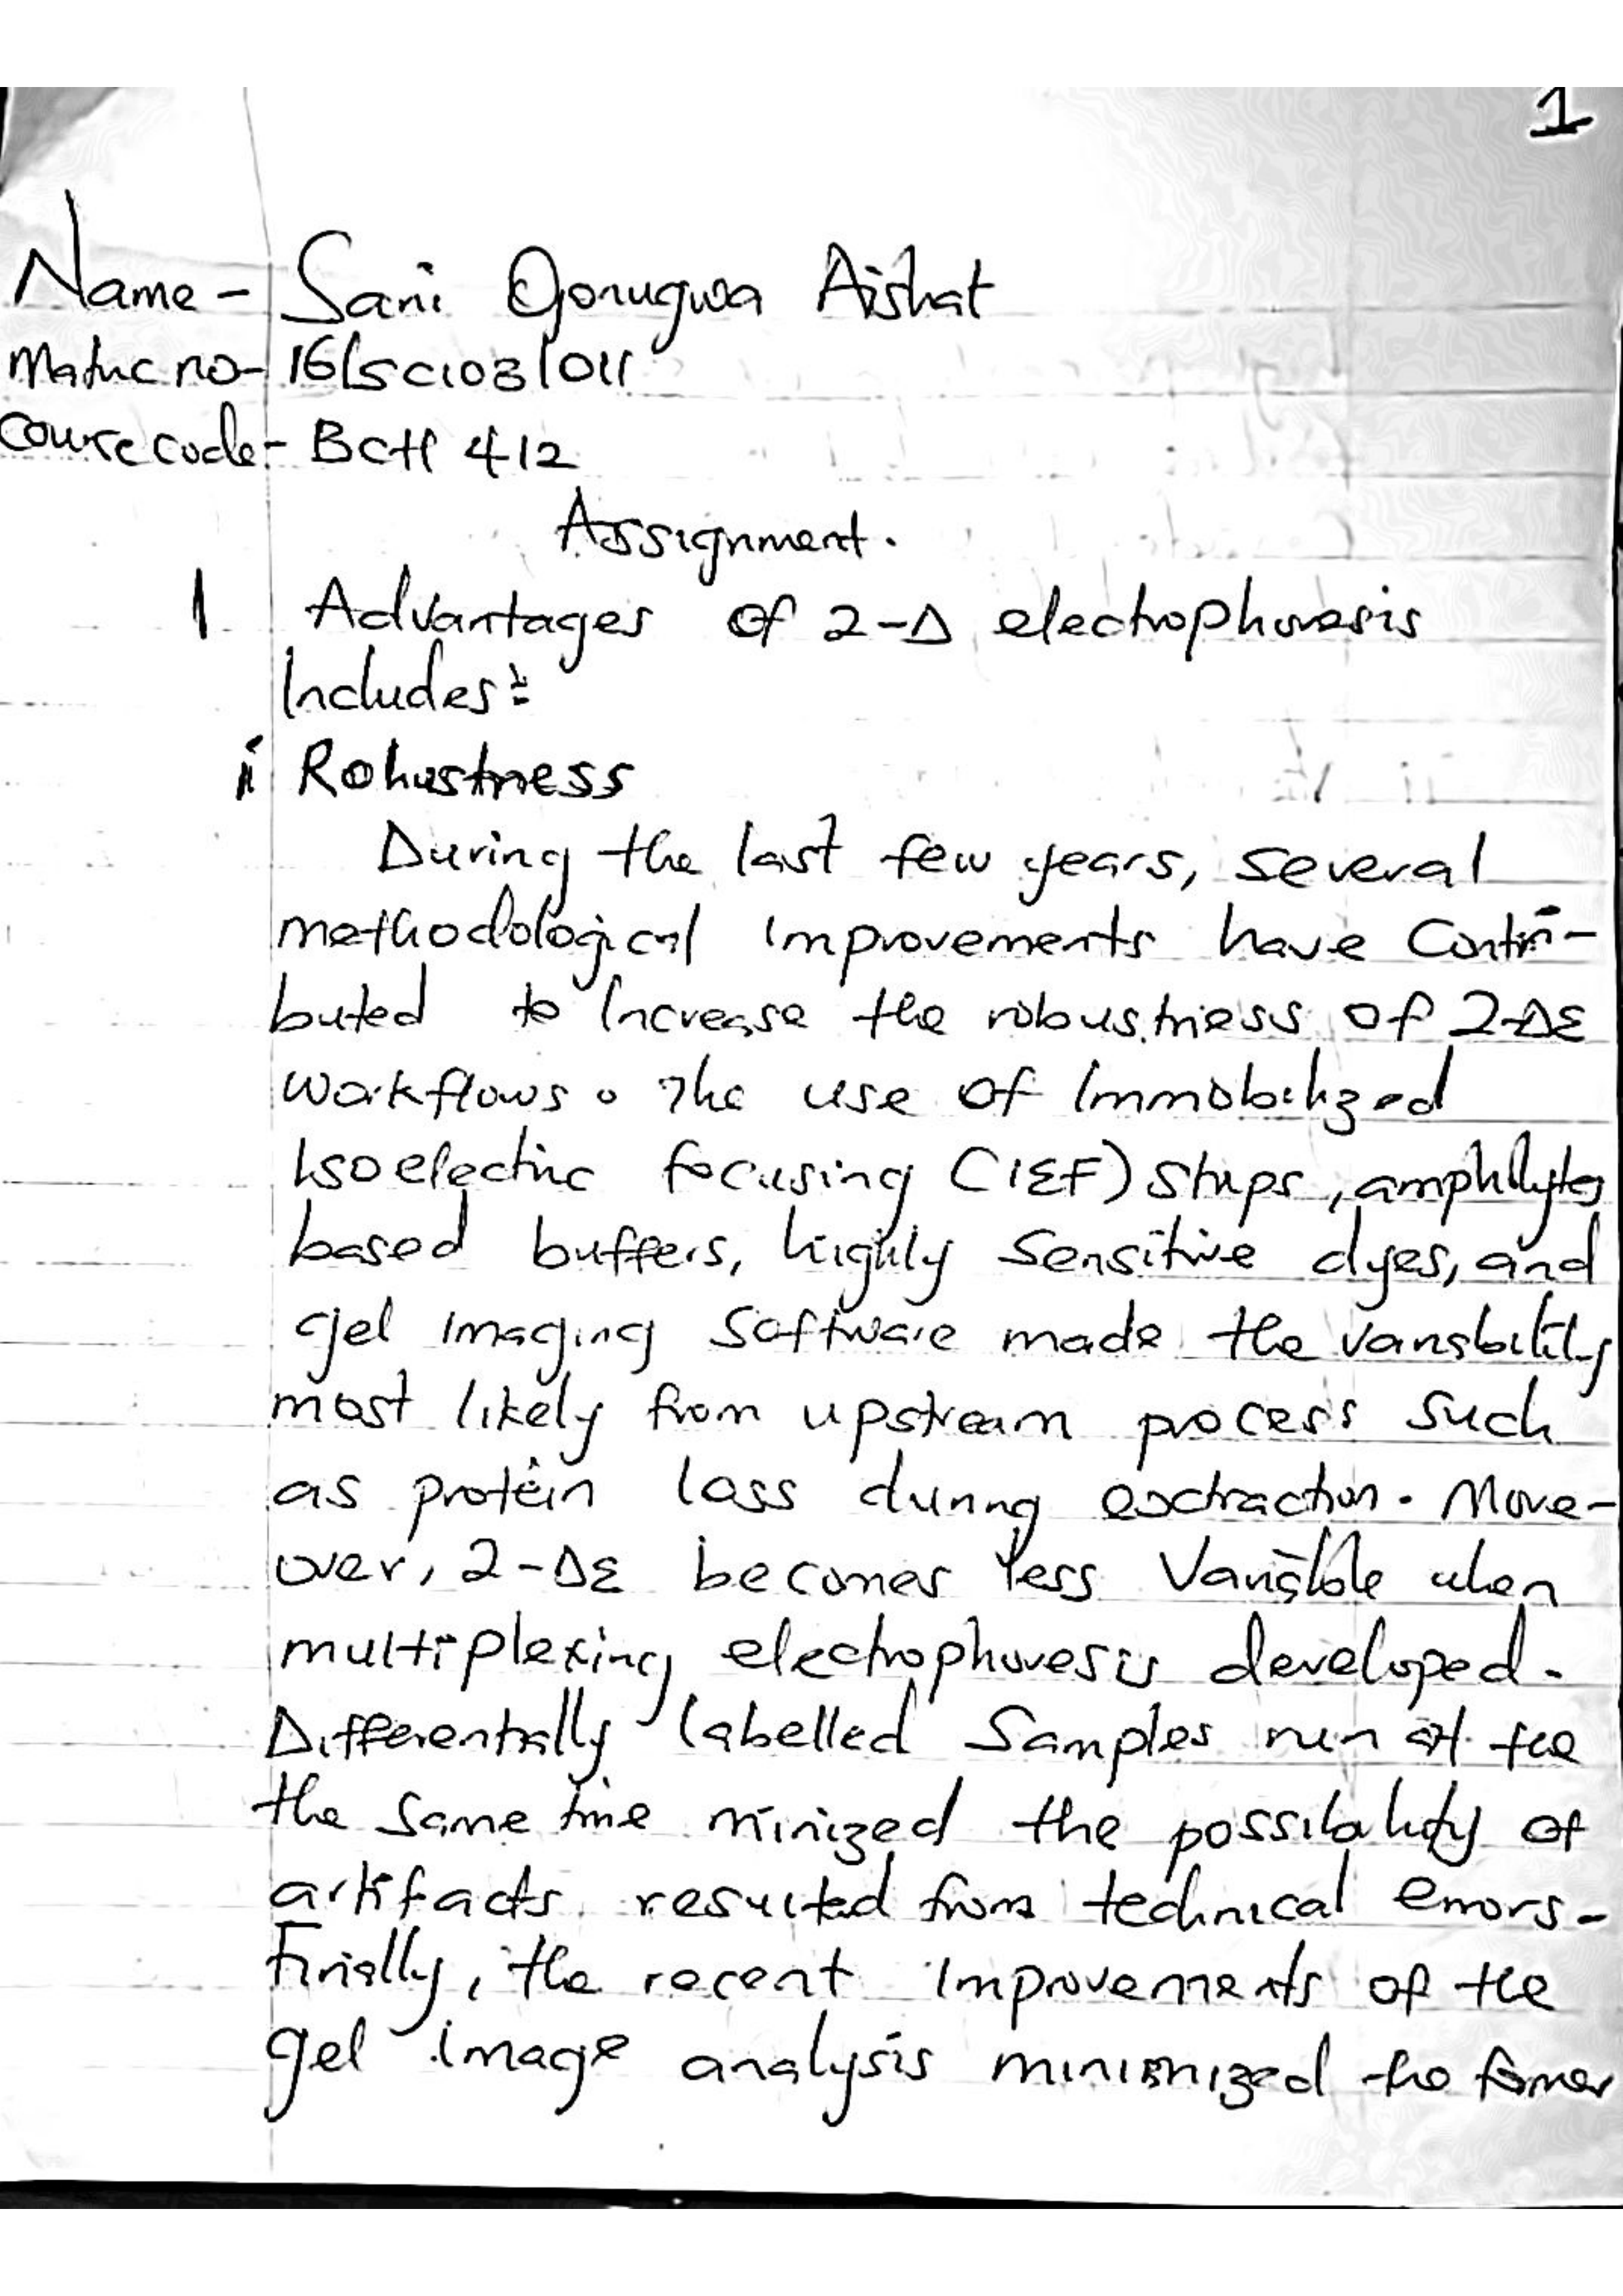 1
Name - Sani Ojonugwa Aishat
Matric no - 16/SCI03/011
Course code - BCH 412
Assignment.
1 Advantages of 2-D electrophoresis
Includes:
i Robustness
During the last few years, several
methodological improvements have contri-
buted to increase the robustness of 2-DE
workflows. The use of immobilized
Isoelectric focusing (IEF) strips, ampholytes
based buffers, highly sensitive dyes, and
gel imaging software made the variability
most likely from upstream process such
as protein loss during extraction. More-
over, 2-DE becomes less variable when
multiplexing electrophoresis developed.
Differentially labelled samples run at the
the same time minized the possibility of
artifacts resulted from technical errors.
Finally, the recent improvements of the
gel image analysis minimized the former